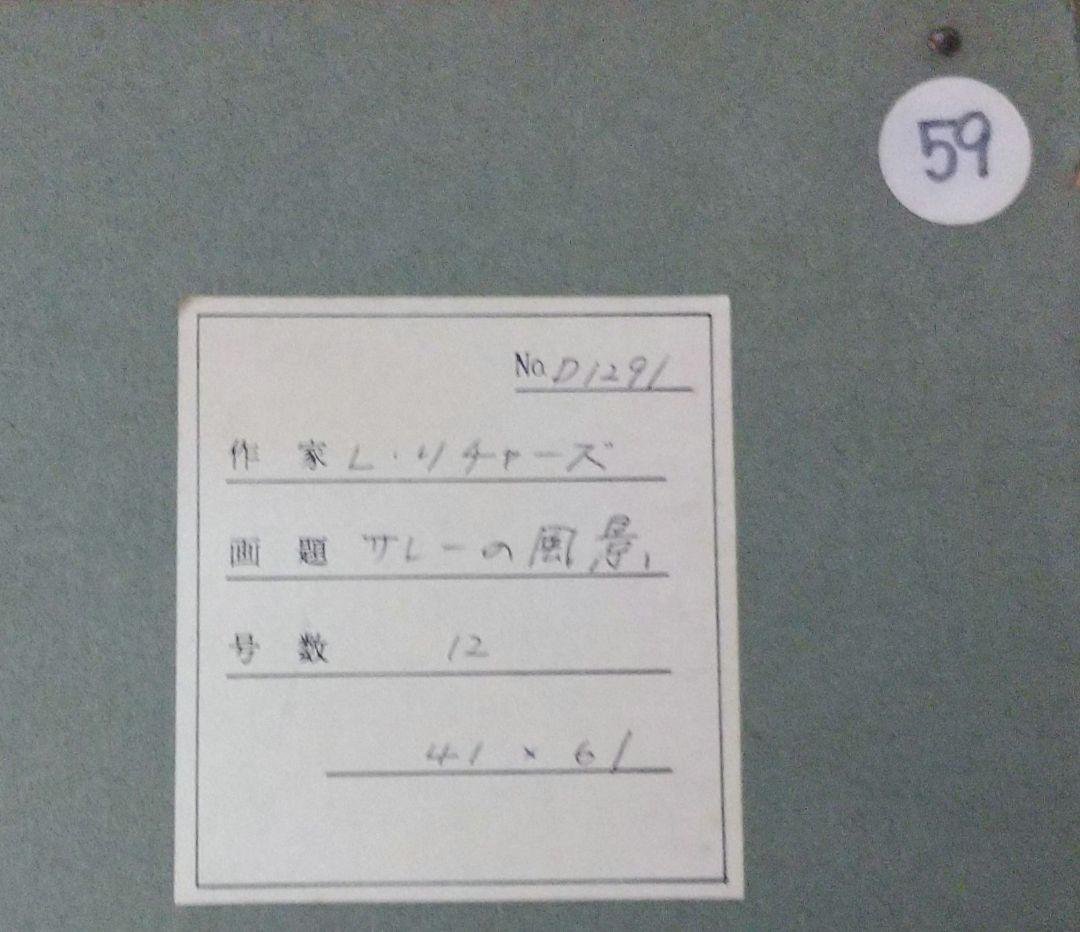 59
No. D1291
作家 L・リチャーズ
画題 サレーの風景
号数 12
41 × 61